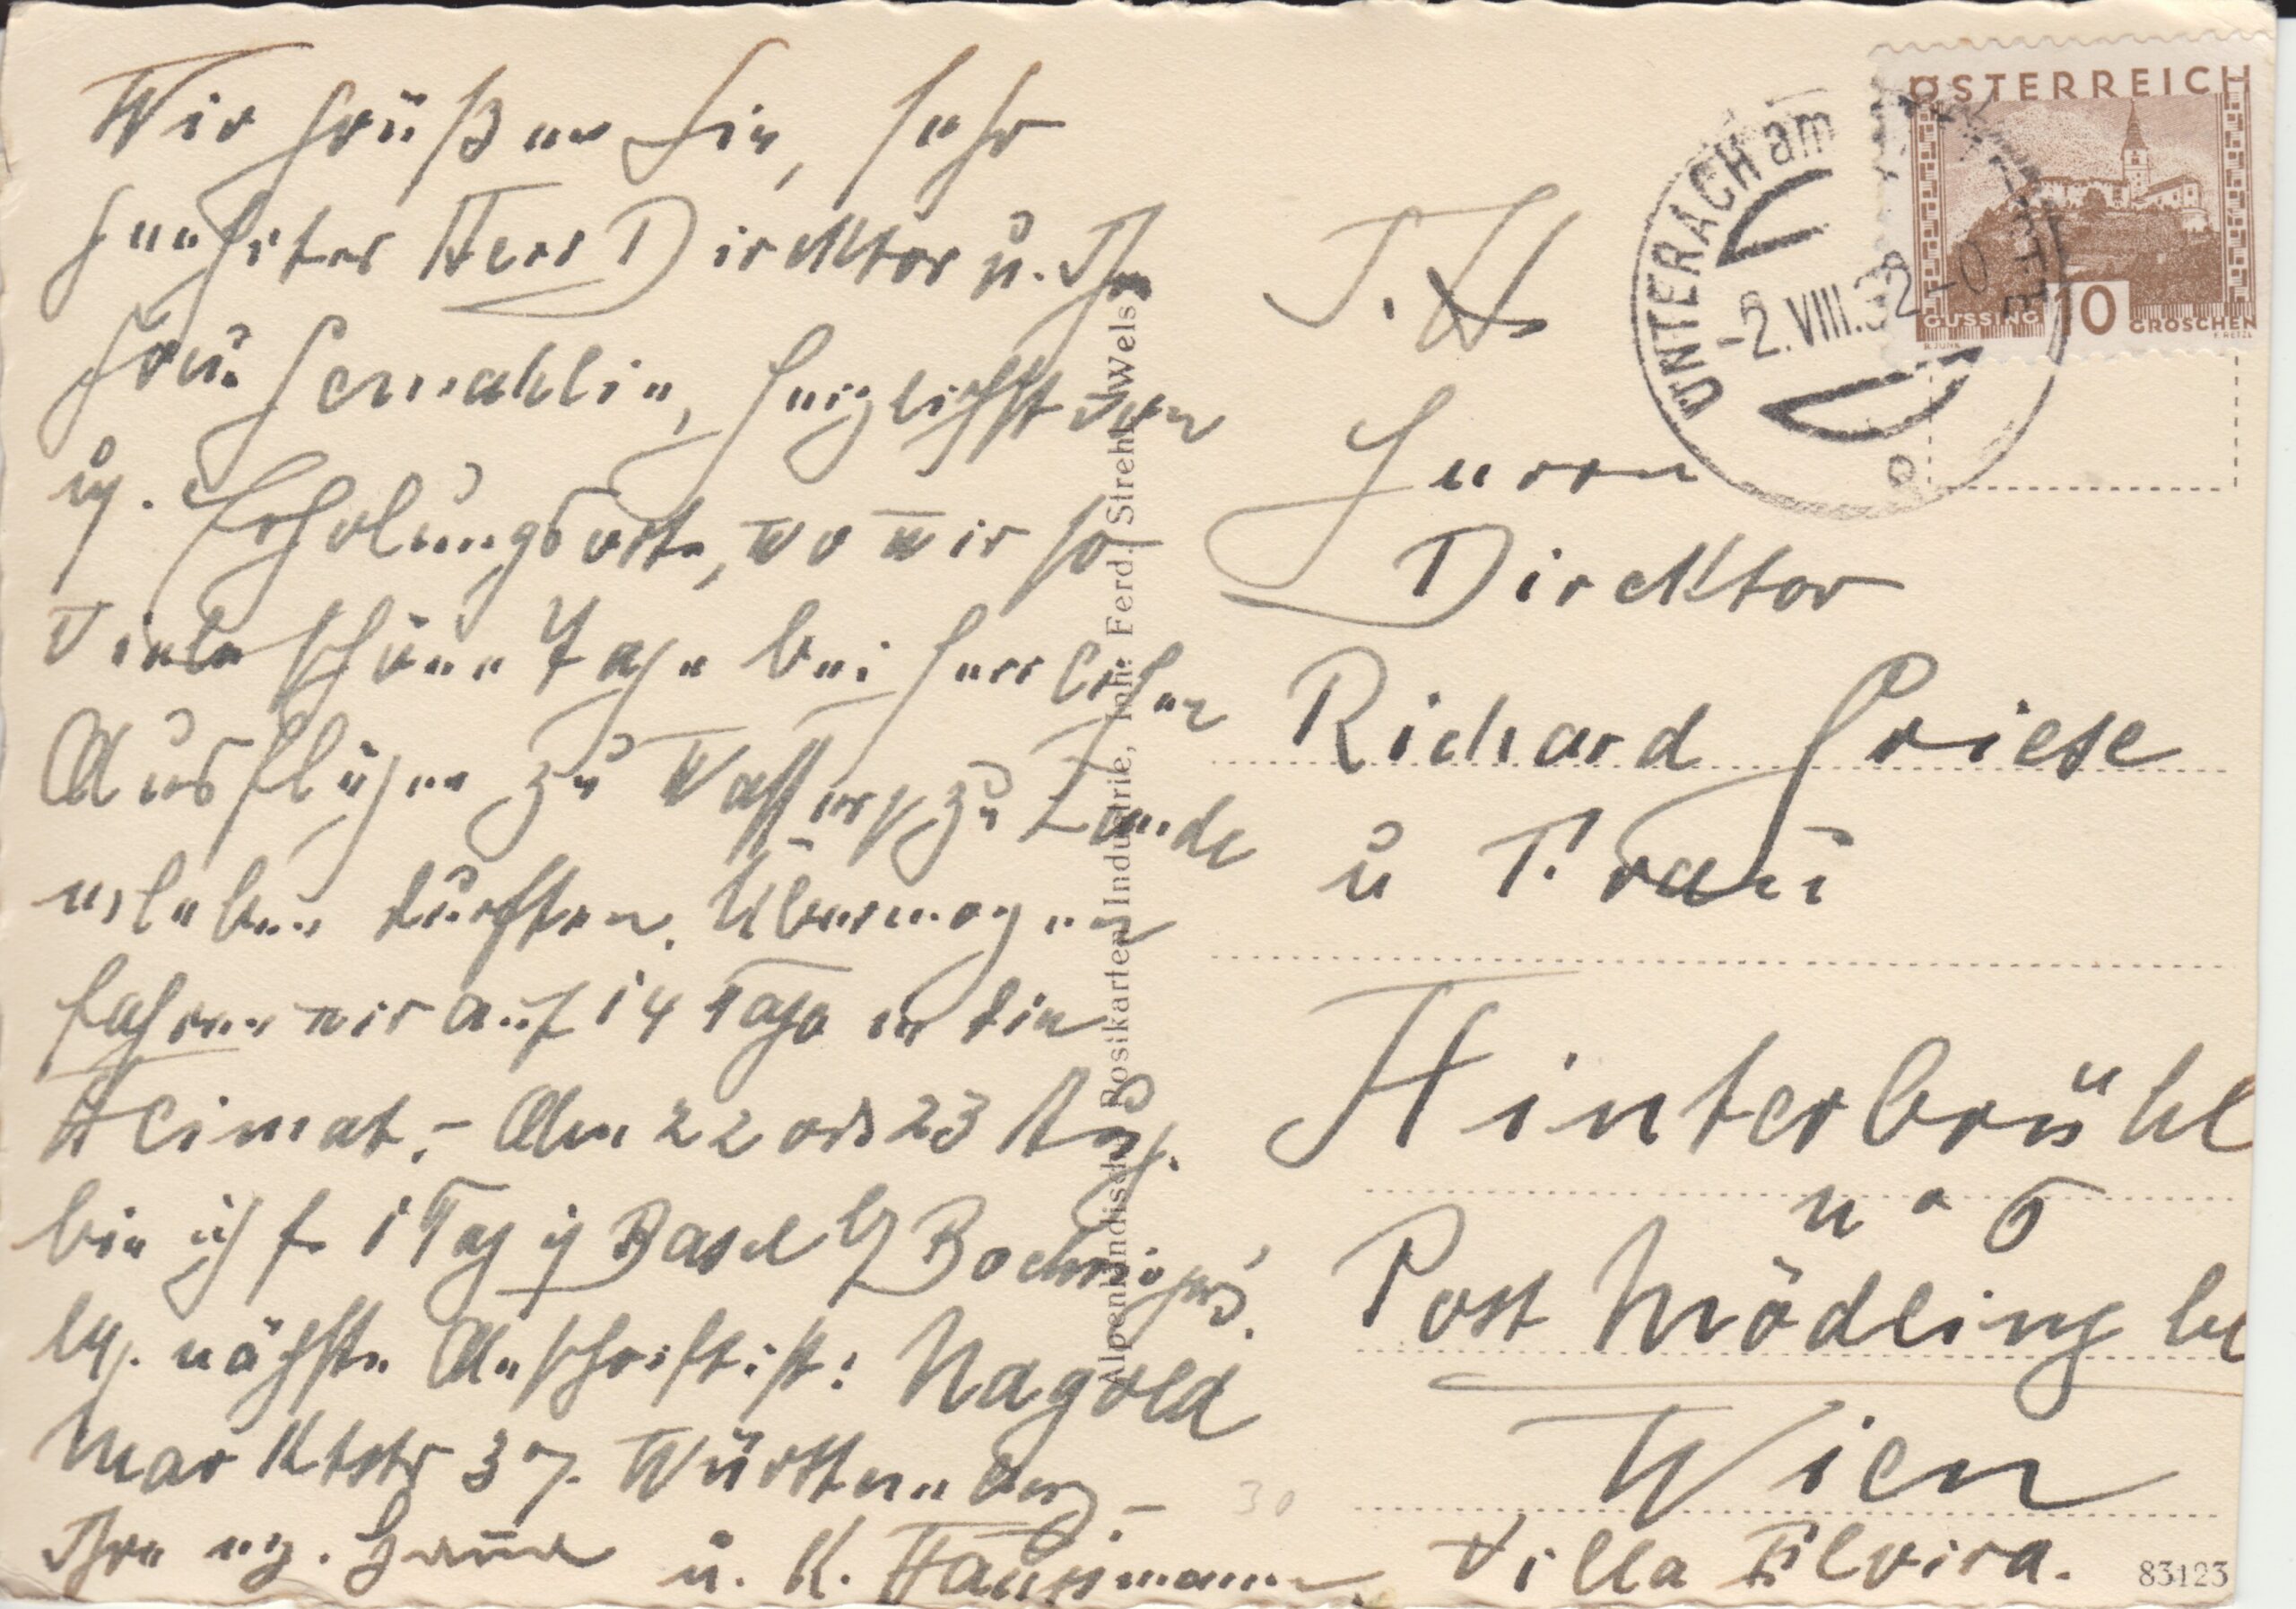 Wir grüßen Sie, sehr
geehrter Herr Direktor u. Ihre
Frau Gemahlin, herzlichst von
Erholungsorte, wo wir so
viele schöne Tage bei herrlichen
Ausflügen zu Wasser zu Lande
erleben durften. Übermorgen
fahren wir auf 14 Tage in die
Heimat. – Am 22 od 23 Aug.
bin ich f. 1 Tag Basel
nächste Anschrift ist: Nagold
Marktstr 37. Württemberg. –
Ihre u. K.
ÖSTERREICH
GÜSSING 10 GROSCHEN
UNTERACH am
-2.VIII.32-
Herrn
Direktor
Richard Griese
u Frau
Hinterbrühl
N.Ö
Post Mödling be
Wien
Villa Elvira.
83123
Alpenländische Postkarten-Industrie, Inh. Ferd. Strehl, Wels